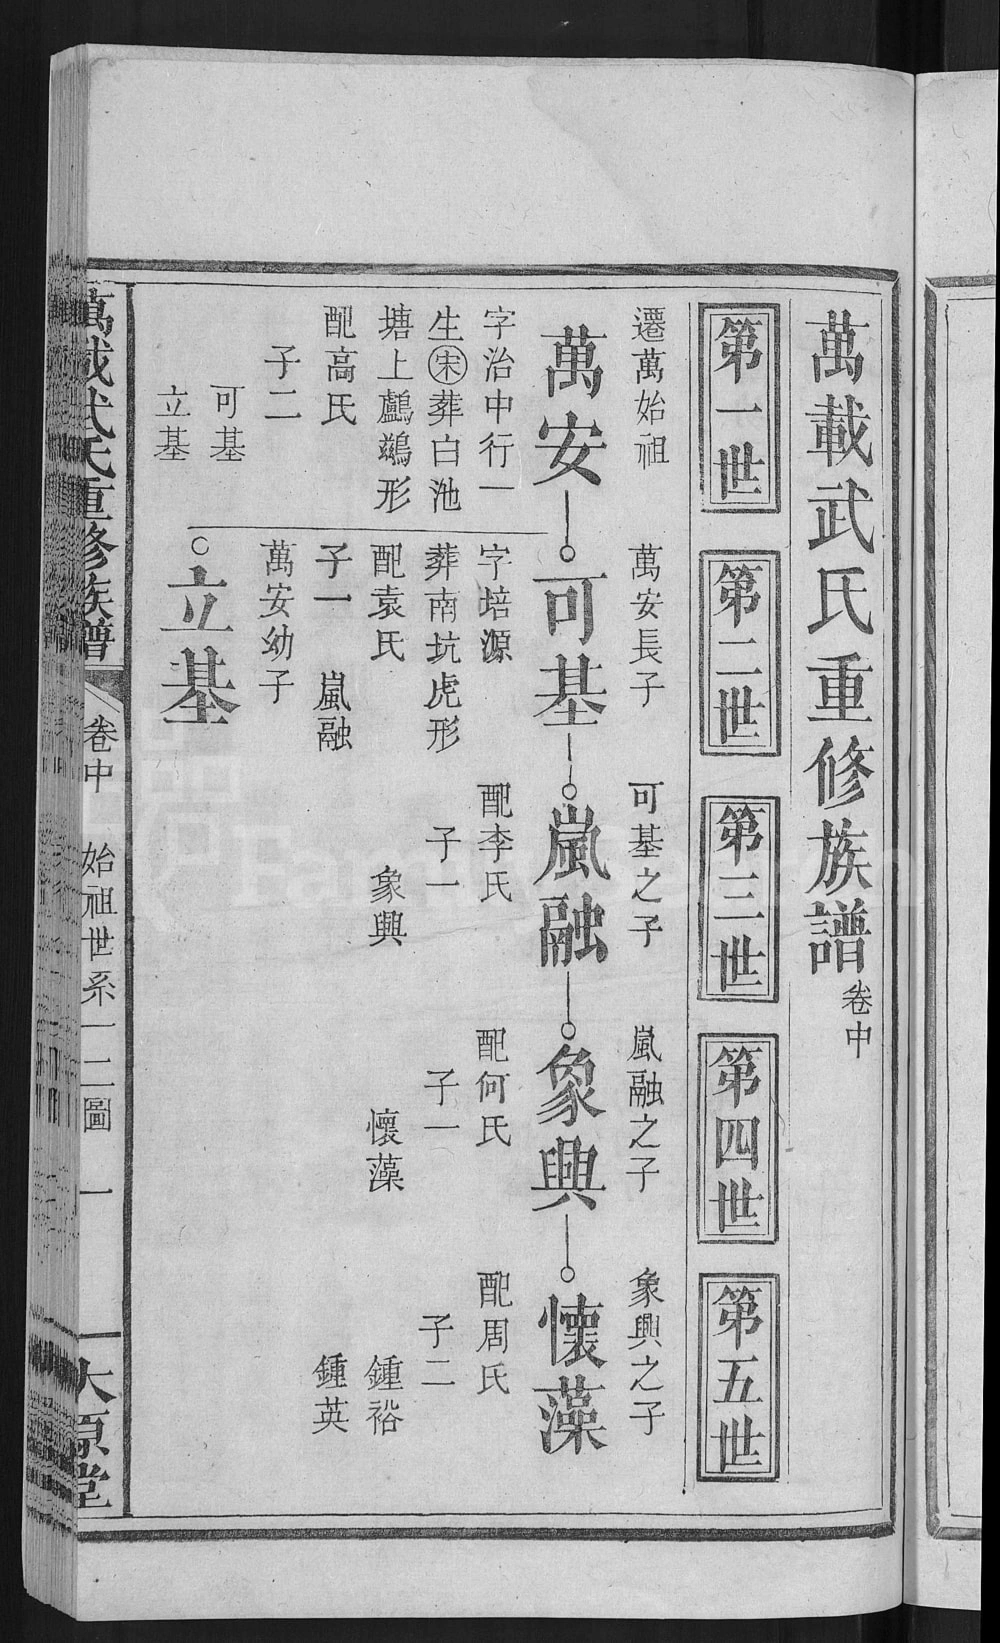 萬載武氏重修族譜卷中
第一世
第二世
第三世
第四世
第五世
遷萬始祖
萬安
字治中行一
生宋葬白池
塘上鸕鷀形
配高氏
子二
可基
立基
萬安長子
可基
字培源
葬南坑虎形
配袁氏
子一 嵐融
萬安幼子
立基
可基之子
嵐融
配李氏
子一
象興
嵐融之子
象興
配何氏
子一
懷藻
象興之子
懷藻
配周氏
子二
鍾裕
鍾英
萬載武氏重修族譜 卷中 始祖世系一二圖 一 太原堂